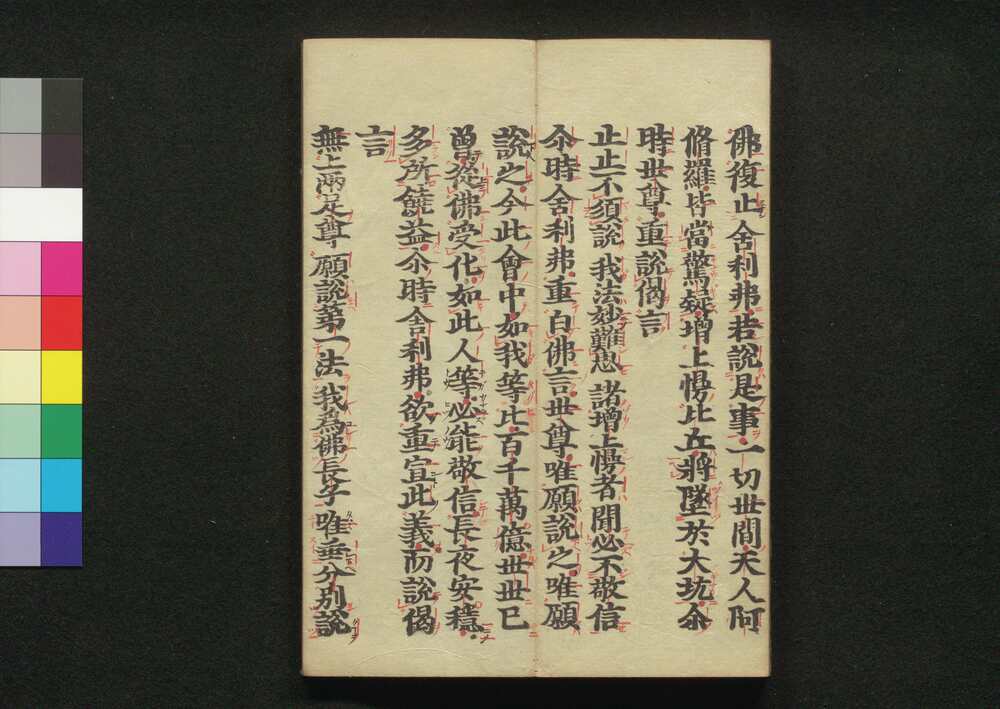 佛復止舍利弗若說是事一切世間天人阿
脩羅皆當驚疑增上慢比丘將墜於大坑尒
時世尊重說偈言
止止不須說 我法妙難思 諸增上慢者聞必不敬信
尒時舍利弗重白佛言世尊唯願說之唯願
說之今此會中如我等比百千萬億世世已
曾從佛受化如此人等必能敬信長夜安穩
多所饒益尒時舍利弗欲重宣此義而說偈
言
無上兩足尊 願說第一法 我為佛長子 唯垂分別說